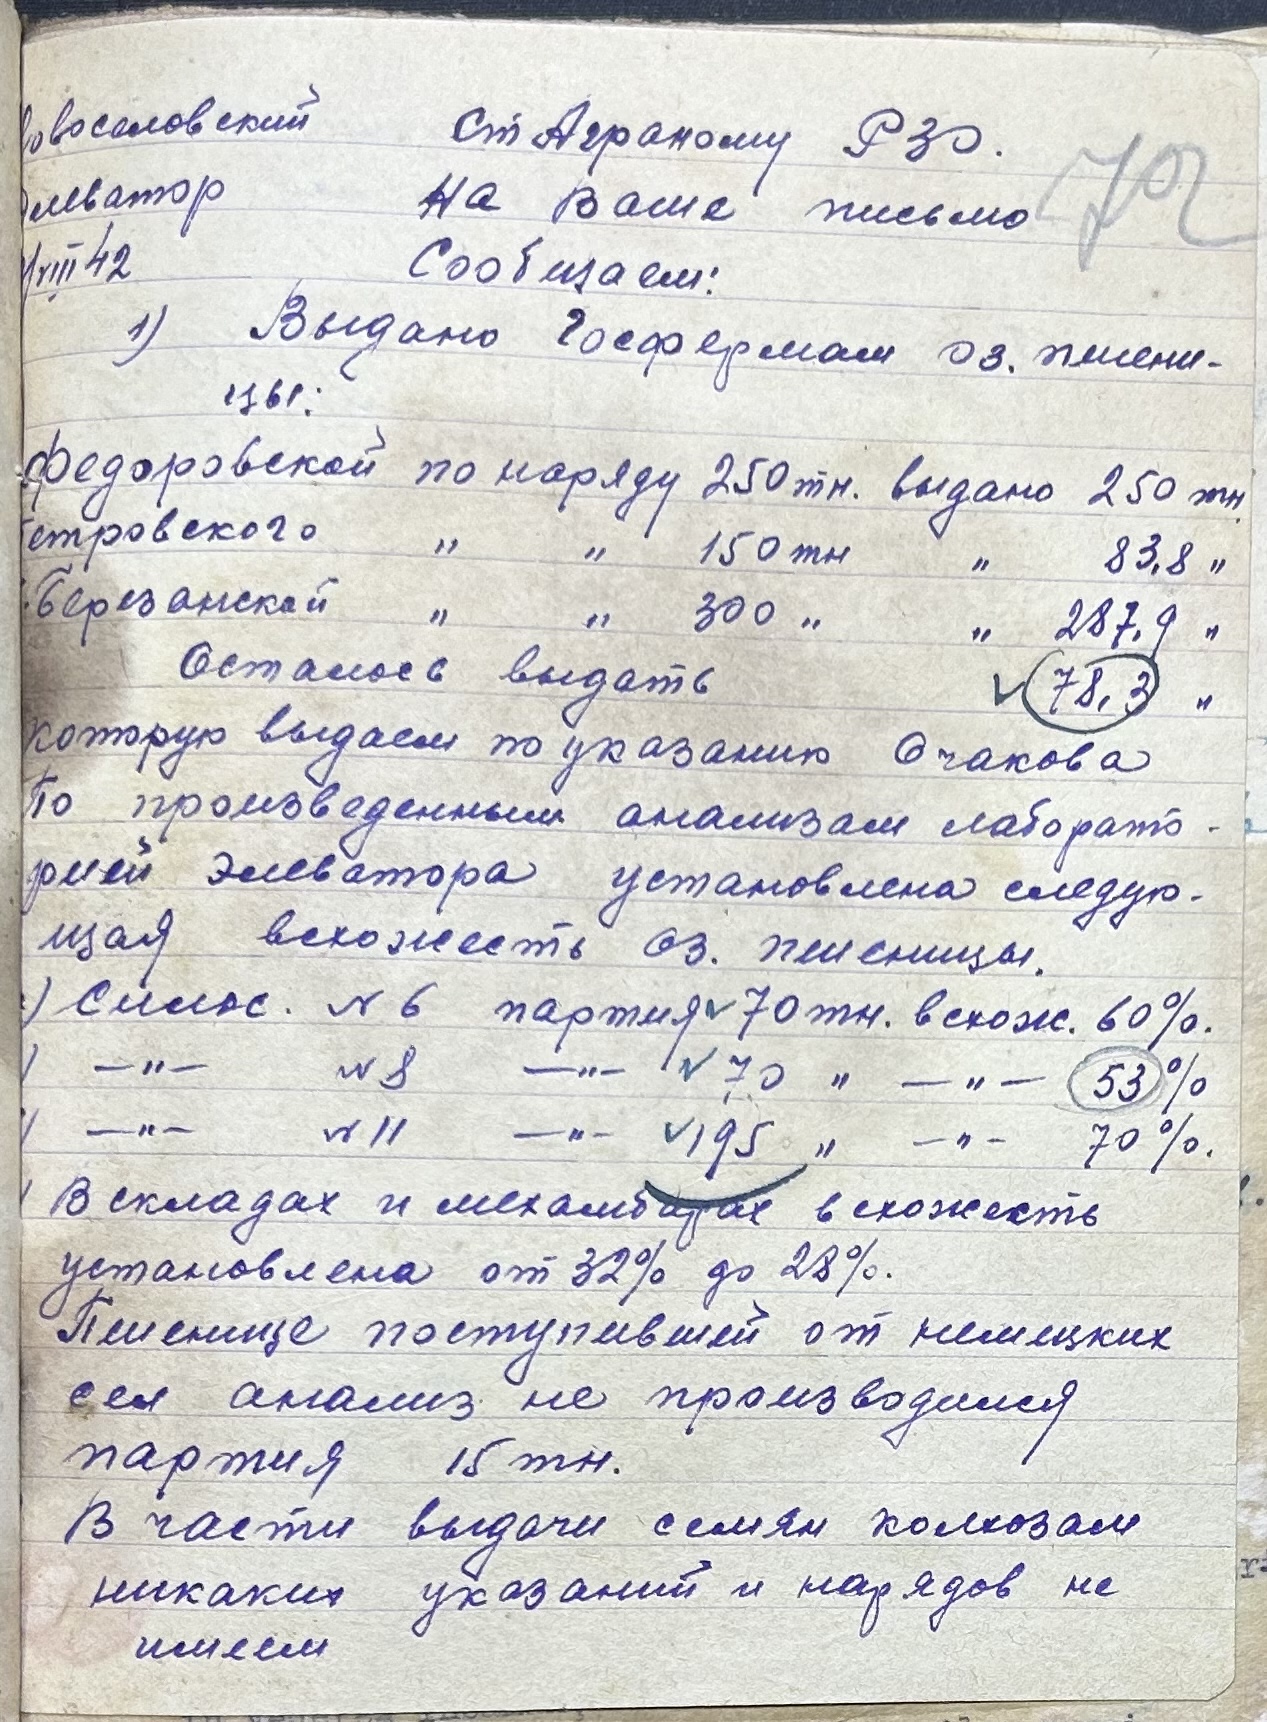 овоселовский Ст Аграному РЗО. 72
леватор На Ваше письмо
/VIII 42 Сообщаем:
1) Выдано Госфермам оз. пшени-
цы:
Федоровской по наряду 250 тн. выдано 250 тн
етровского " " 150 тн " 83,8 "
Березанской " " 300 " " 287,9 "
Осталось выдать 78,3 "
которую выдаем по указанию Очакова
По произведенным анализам лаборато-
рией элеватора установлена следую-
щая всхожесть оз. пшеницы.
) Силос. № 6 партия 70 тн. всхож. 60%.
) —"— № 8 —"— 70 " —"— 53%
) —"— № 11 —"— 195 " —"— 70%.
В складах и механбарах всхожесть
установлена от 32% до 28%.
Пшенице поступившей от немецких
сел анализ не производился
партия 15 тн.
В части выдачи семян колхозам
никаких указаний и нарядов не
имеем